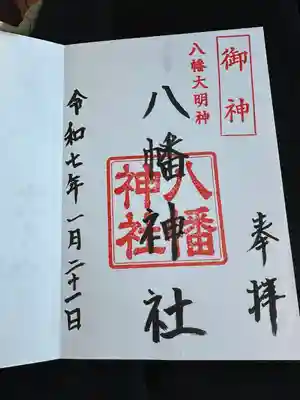 御神
八幡大明神
奉拝
八幡神社
八幡神社
令和七年一月二十一日